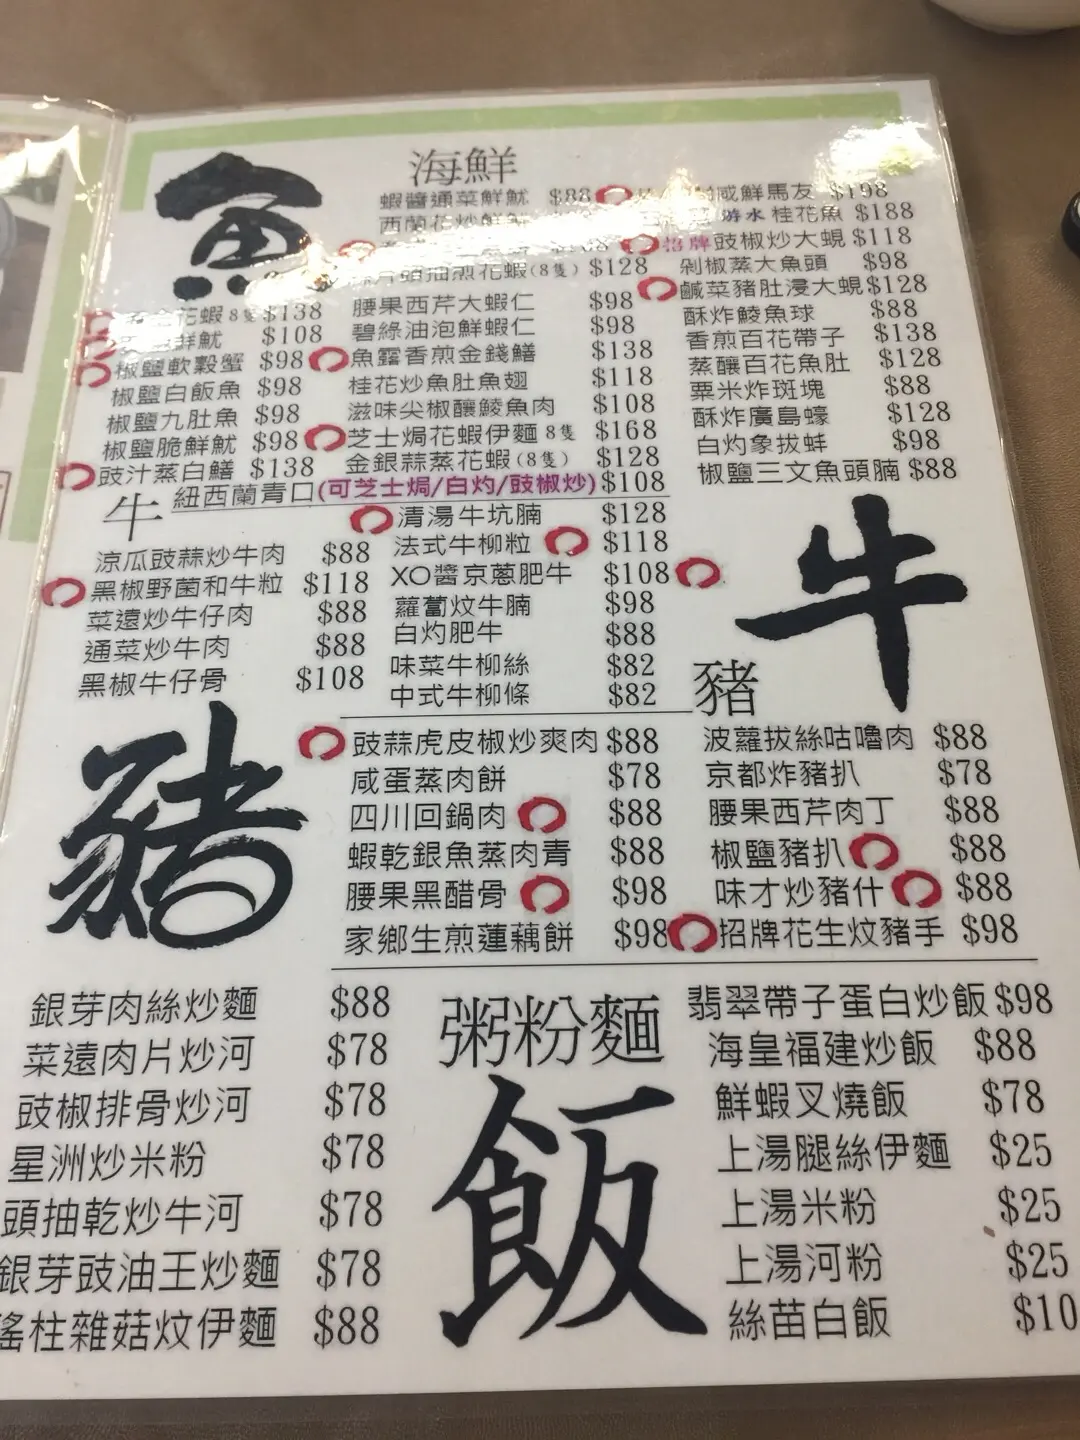 魚
海鮮
蝦醬通菜鮮魷 $88
西蘭花炒鮮魷
頭抽煎花蝦(8隻) $128
花蝦 8隻 $138
鮮魷 $108
椒鹽軟殼蟹 $98
椒鹽白飯魚 $98
椒鹽九肚魚 $98
椒鹽脆鮮魷 $98
豉汁蒸白鱔 $138
腰果西芹大蝦仁 $98
碧綠油泡鮮蝦仁 $98
魚露香煎金錢鱔 $138
桂花炒魚肚魚翅 $118
滋味尖椒釀鯪魚肉 $108
芝士焗花蝦伊麵 8隻 $168
金銀蒜蒸花蝦(8隻) $128
紐西蘭青口(可芝士焗/白灼/豉椒炒) $108
咸鮮馬友 $198
游水桂花魚 $188
招牌豉椒炒大蜆 $118
剁椒蒸大魚頭 $98
鹹菜豬肚浸大蜆 $128
酥炸鯪魚球 $88
香煎百花帶子 $138
蒸釀百花魚肚 $128
粟米炸斑塊 $88
酥炸廣島蠔 $128
白灼象拔蚌 $98
椒鹽三文魚頭腩 $88
牛
涼瓜豉蒜炒牛肉 $88
黑椒野菌和牛粒 $118
菜遠炒牛仔肉 $88
通菜炒牛肉 $88
黑椒牛仔骨 $108
清湯牛坑腩 $128
法式牛柳粒 $118
XO醬京蔥肥牛 $108
蘿蔔炆牛腩 $98
白灼肥牛 $88
味菜牛柳絲 $82
中式牛柳條 $82
牛
豬
豬
豉蒜虎皮椒炒爽肉 $88
咸蛋蒸肉餅 $78
四川回鍋肉 $88
蝦乾銀魚蒸肉青 $88
腰果黑醋骨 $98
家鄉生煎蓮藕餅 $98
波蘿拔絲咕嚕肉 $88
京都炸豬扒 $78
腰果西芹肉丁 $88
椒鹽豬扒 $88
味才炒豬什 $88
招牌花生炆豬手 $98
銀芽肉絲炒麵 $88
菜遠肉片炒河 $78
豉椒排骨炒河 $78
星洲炒米粉 $78
頭抽乾炒牛河 $78
銀芽豉油王炒麵 $78
瑤柱雜菇炆伊麵 $88
粥粉麵
飯
翡翠帶子蛋白炒飯 $98
海皇福建炒飯 $88
鮮蝦叉燒飯 $78
上湯腿絲伊麵 $25
上湯米粉 $25
上湯河粉 $25
絲苗白飯 $10